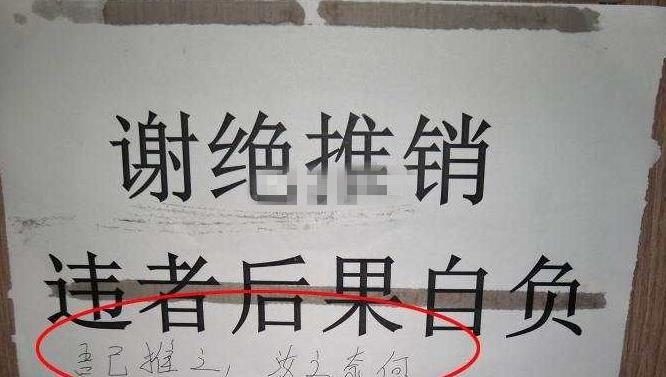 谢绝推销
违者后果自负
吾已推之，汝之奈何